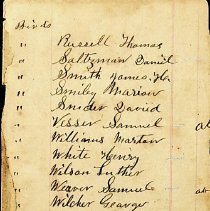 Birds
" Russell Thomas
" Saltzman Daniel
" Smith James
" Smiley Marion
" Snider David
" Visser Samuel
" Williams Martin
" White Henry
" Wilson Luther
" Weaver Samuel
" Wilcker George